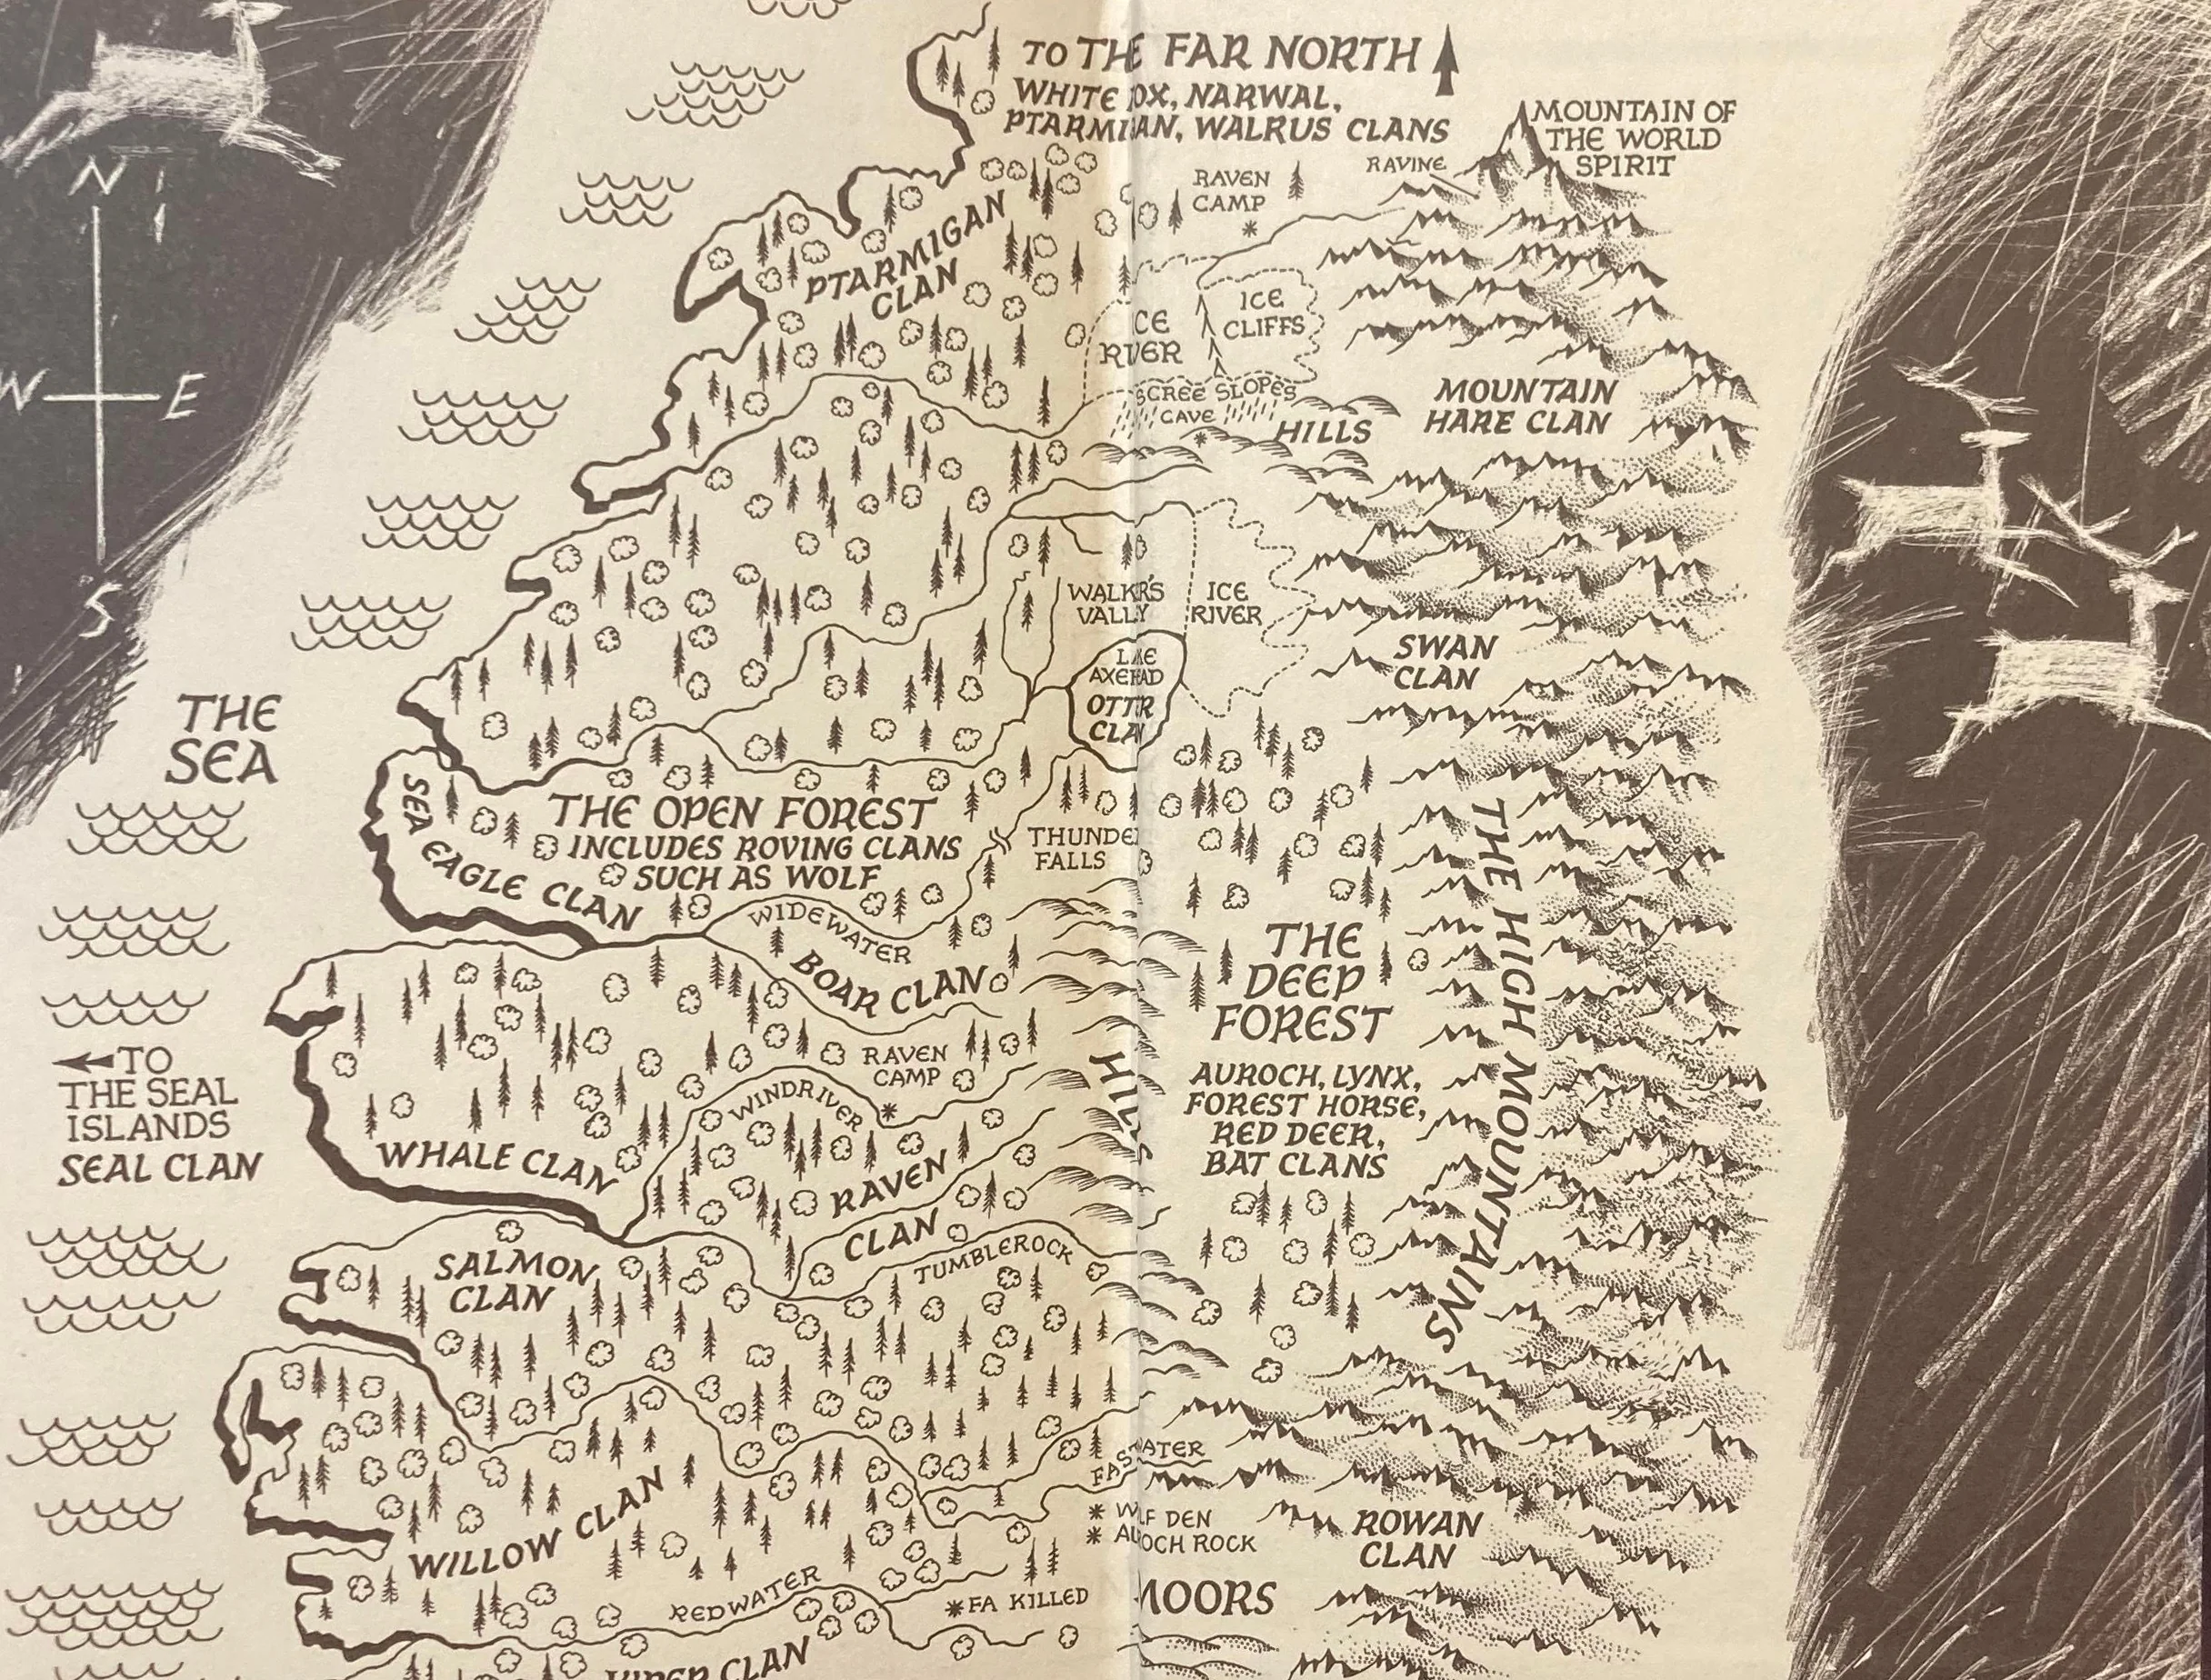 TO THE FAR NORTH
WHITE OX, NARWAL,
PTARMIAN, WALRUS CLANS
MOUNTAIN OF
THE WORLD
SPIRIT
RAVINE
RAVEN
CAMP
N
W E
S
PTARMIGAN
CLAN
ICE
CLIFFS
CE
RIVER
SCREE SLOPES
CAVE
HILLS
MOUNTAIN
HARE CLAN
WALKR'S
VALLY
ICE
RIVER
LAE
AXEHAD
OTTR
CLA
SWAN
CLAN
THE
SEA
SEA EAGLE CLAN
THE OPEN FOREST
INCLUDES ROVING CLANS
SUCH AS WOLF
THUNDE
FALLS
WIDEWATER
BOAR CLAN
THE HIGH MOUNTAINS
THE
DEEP
FOREST
AUROCH, LYNX,
FOREST HORSE,
RED DEER,
BAT CLANS
HILLS
TO
THE SEAL
ISLANDS
SEAL CLAN
RAVEN
CAMP
WINDRIVER
WHALE CLAN
RAVEN
CLAN
TUMBLEROCK
SALMON
CLAN
FASTWATER
WLF DEN
AUOCH ROCK
ROWAN
CLAN
WILLOW CLAN
REDWATER
FA KILLED
MOORS
VIPER CLAN